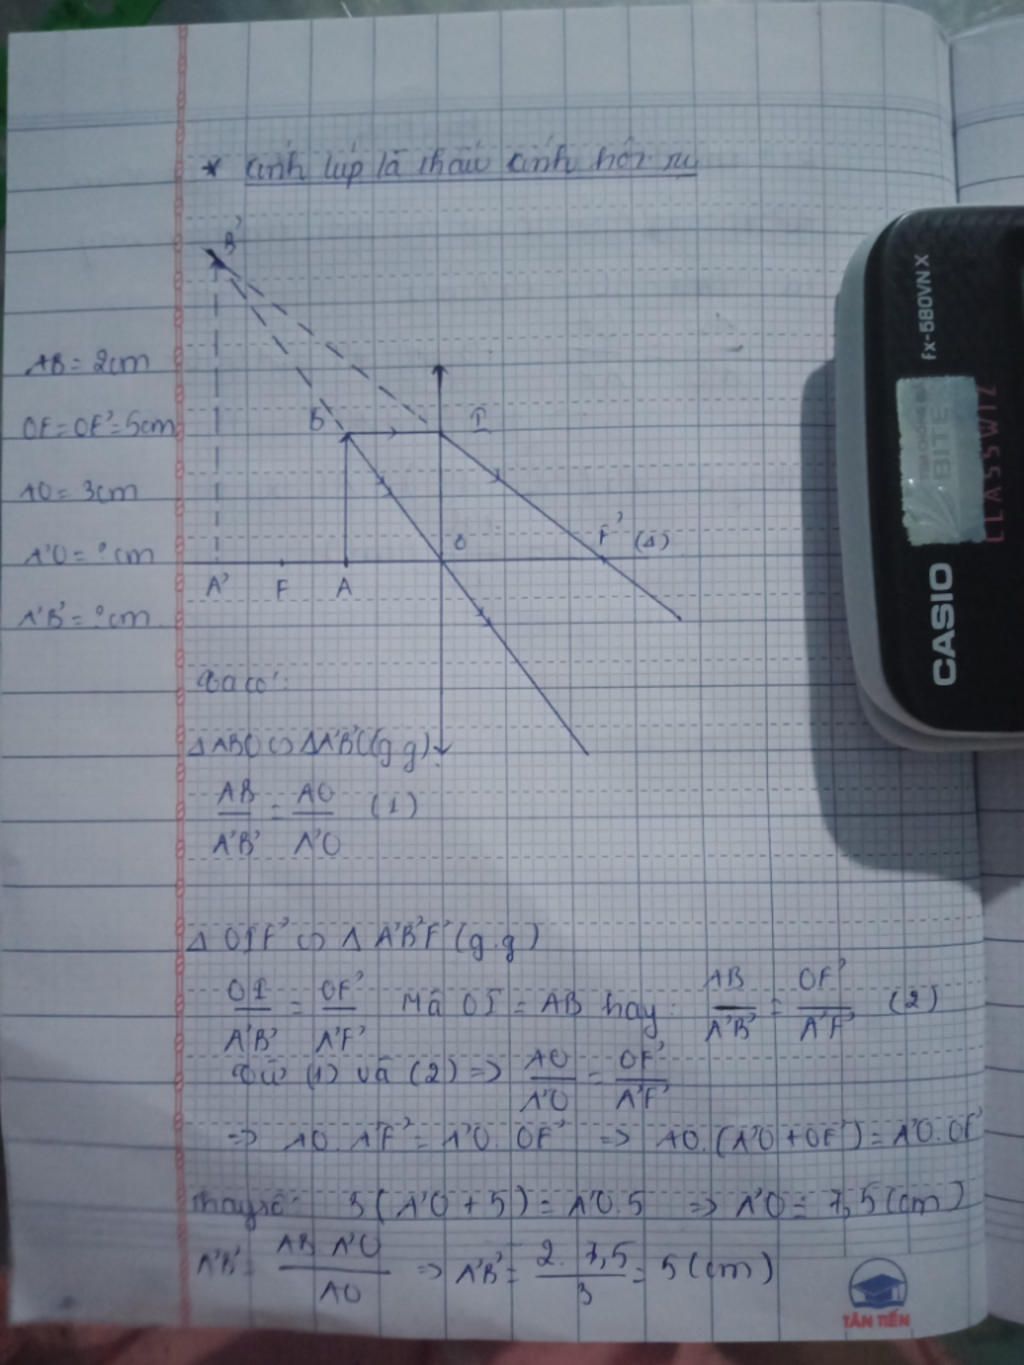 * kính lúp là thấu kính hội tụ
B'
AB = 2cm
OF = OF' = 5cm
AO = 3cm
A'O = ? cm
A'B' = ? cm
B I
O F' (Δ)
A' F A
Ta có:
Δ ABO ∽ Δ A'B'O (g.g)
AB/A'B' = AO/A'O (1)
Δ OIF' ∽ Δ A'B'F' (g.g)
OI/A'B' = OF'/A'F' Mà OI = AB hay: AB/A'B' = OF'/A'F' (2)
Từ (1) và (2) => AO/A'O = OF'/A'F'
=> AO. A'F' = A'O. OF' => AO.(A'O + OF') = A'O. OF'
Thay số: 3(A'O + 5) = A'O.5 => A'O = 7,5 (cm)
A'B' = AB A'O/AO => A'B' = 2. 7,5/3 = 5 (cm)
TÂN TIẾN
CASIO
fx-580VN X
CLASSWIZ
BITE